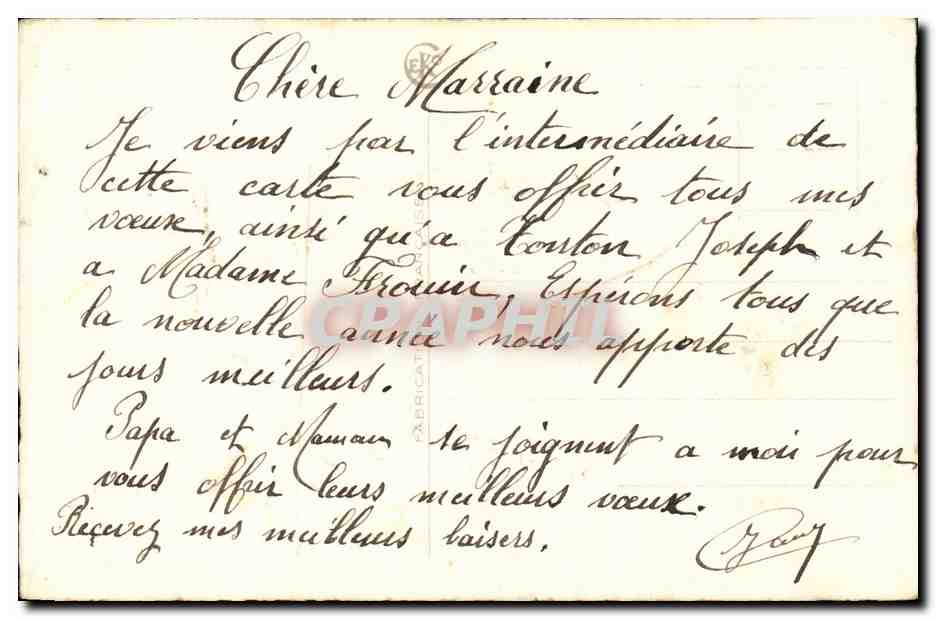 Chère Marraine
Je viens par l'intermédiaire de
cette carte vous offrir tous mes
vœux, ainsi qu'a tonton Joseph et
a Madame Frouin, Espérons tous que
la nouvelle année nous apporte des
jours meilleurs.
Papa et Maman se joignent a moi pour
vous offrir leurs meilleurs vœux.
Reçevez mes meilleurs baisers.
CPAPHIL
FABRICATION FRANÇAISE